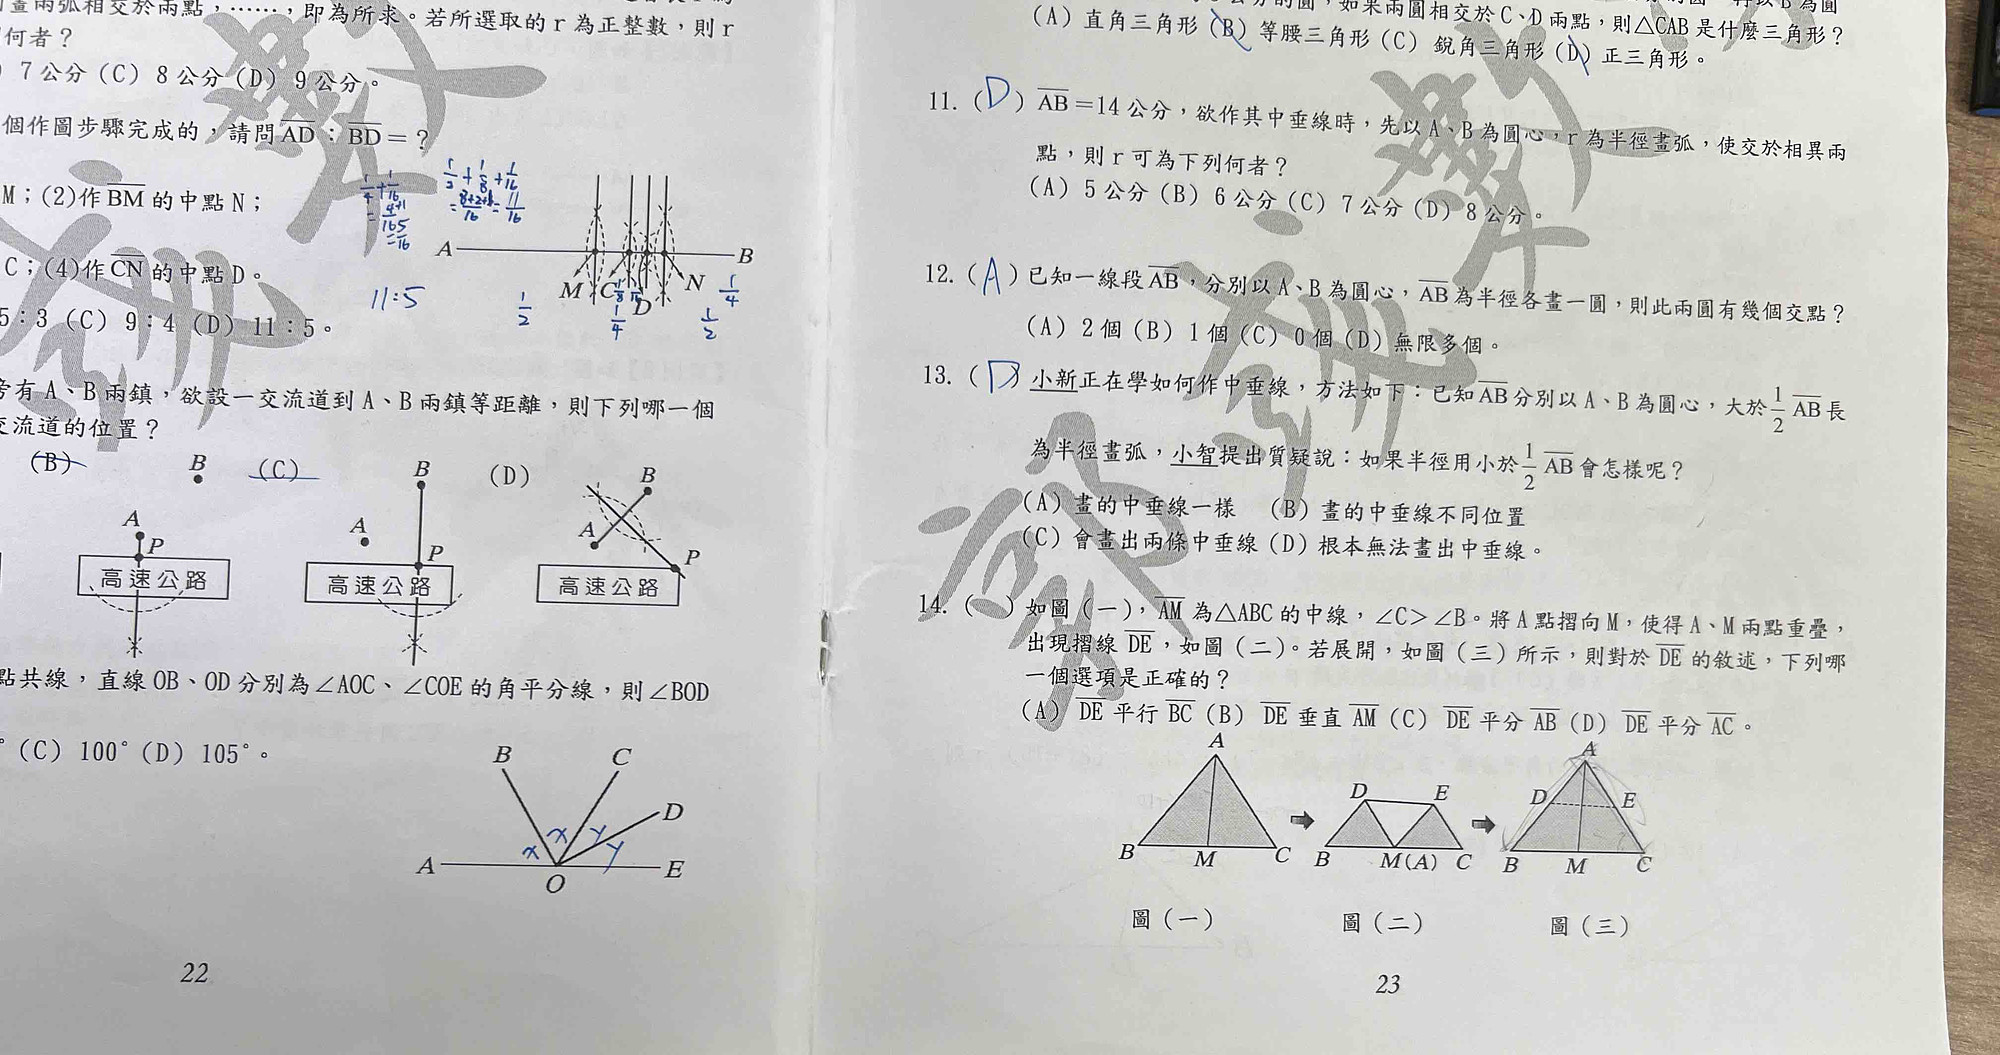 畫兩弧相交於兩點，……，即為所求。若所選取的 r 為正整數，則 r
何者？
7公分 (C) 8公分 (D) 9公分。
個作圖步驟完成的，請問AD：BD＝？
M；(2)作BM的中點N；
C；(4)作CN的中點D。
5：3 (C) 9：4 (D) 11：5。
1/4+1/16
=4+1/16
=5/16
1/2+1/8+1/16
=8+2+1/16=11/16
A B
M C D N
11:5
1/2 1/4 1/8 1/2 1/4
旁有A、B兩鎮，欲設一交流道到A、B兩鎮等距離，則下列哪一個
交流道的位置？
(B) B (C) B (D) B
A P A P A P
高速公路 高速公路 高速公路
點共線，直線OB、OD分別為∠AOC、∠COE的角平分線，則∠BOD
° (C) 100° (D) 105°。
B C
D
x x y y
A O E
22
(A) 直角三角形 (B) 等腰三角形 (C) 銳角三角形 (D) 正三角形。
公分的圓，如果兩圓相交於C、D兩點，則△CAB是什麼三角形？
11. (D) AB＝14公分，欲作其中垂線時，先以A、B為圓心，r為半徑畫弧，使交於相異兩
點，則 r 可為下列何者？
(A) 5公分 (B) 6公分 (C) 7公分 (D) 8公分。
12. (A) 已知一線段AB，分別以A、B為圓心，AB為半徑各畫一圓，則此兩圓有幾個交點？
(A) 2個 (B) 1個 (C) 0個 (D) 無限多個。
13. (D) 小新正在學如何作中垂線，方法如下：已知AB分別以A、B為圓心，大於1/2 AB長
為半徑畫弧，小智提出質疑說：如果半徑用小於1/2 AB會怎樣呢？
(A) 畫的中垂線一樣 (B) 畫的中垂線不同位置
(C) 會畫出兩條中垂線 (D) 根本無法畫出中垂線。
14. ( ) 如圖(一)，AM為△ABC的中線，∠C＞∠B。將A點摺向M，使得A、M兩點重疊，
出現摺線DE，如圖(二)。若展開，如圖(三)所示，則對於DE的敘述，下列哪
一個選項是正確的？
(A) DE平行BC (B) DE垂直AM (C) DE平分AB (D) DE平分AC。
A A
D E D E
B M C B M(A) C B M C
圖(一) 圖(二) 圖(三)
23